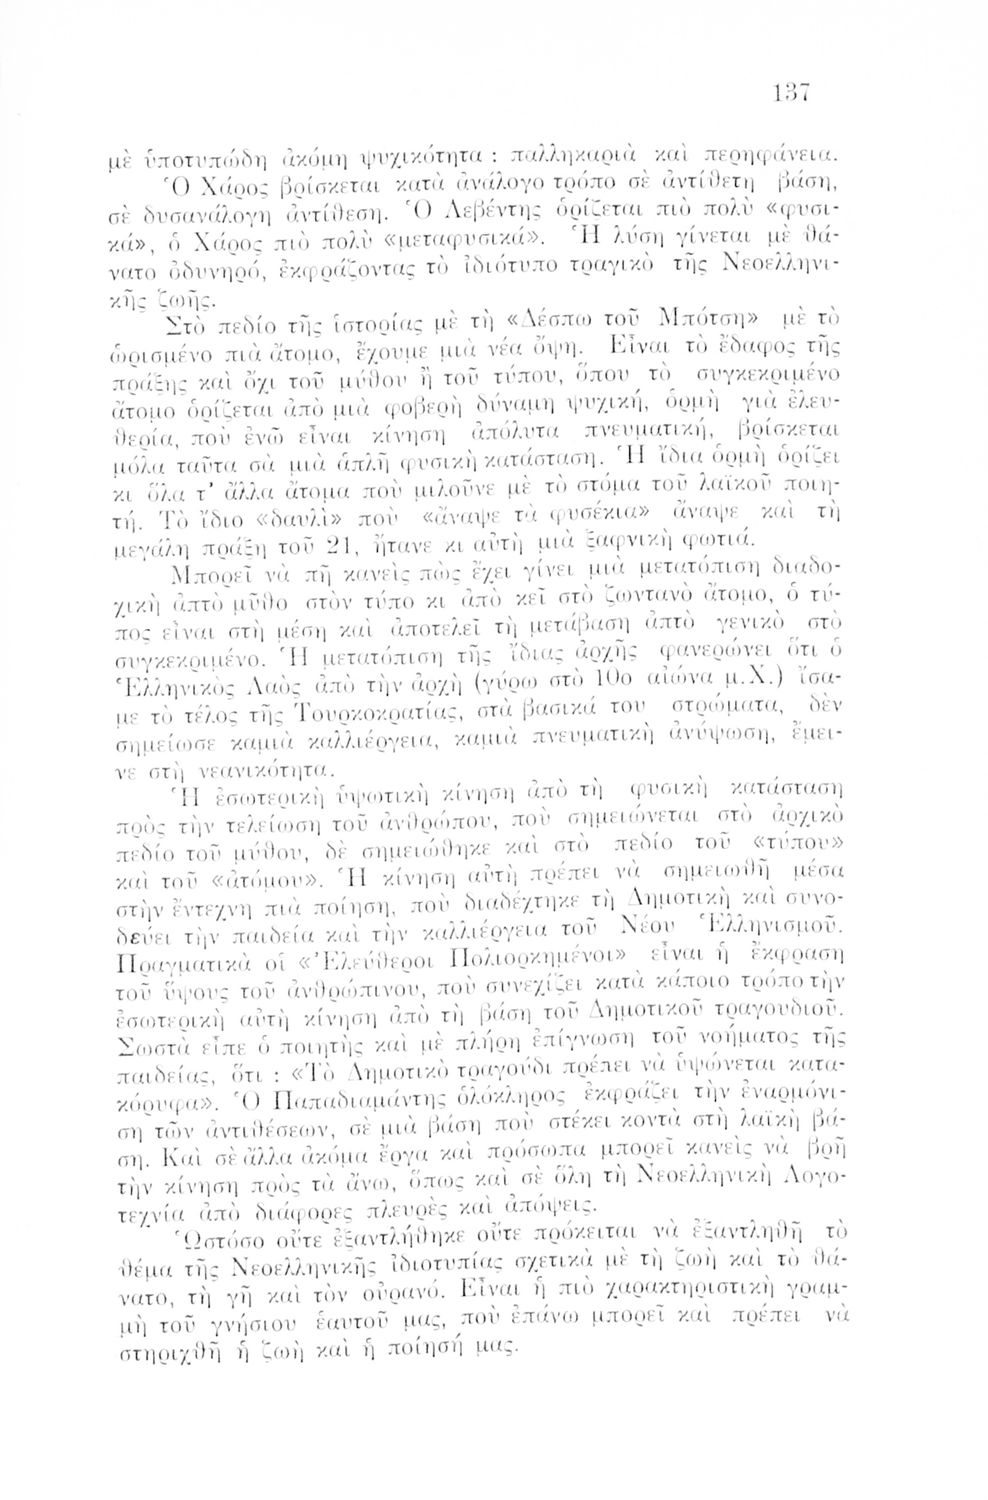 137
μὲ ὑποτυπώδη ἀκόμη ψυχικότητα : παλληκαριὰ καὶ περηφάνεια.
Ὁ Χάρος βρίσκεται κατὰ ἀνάλογο τρόπο σὲ ἀντίθετη βάση,
σὲ δυσανάλογη ἀντίθεση. Ὁ Λεβέντης ὁρίζεται πιὸ πολὺ «φυσι-
κά», ὁ Χάρος πιὸ πολὺ «μεταφυσικά». Ἡ λύση γίνεται μὲ θά-
νατο ὀδυνηρό, ἐκφράζοντας τὸ ἰδιότυπο τραγικὸ τῆς Νεοελληνι-
κῆς ζωῆς.
Στὸ πεδίο τῆς ἱστορίας μὲ τὴ «Δέσπω τοῦ Μπότση» μὲ τὸ
ὡρισμένο πιὰ ἄτομο, ἔχουμε μιὰ νέα ὄψη. Εἶναι τὸ ἔδαφος τῆς
πράξης καὶ ὄχι τοῦ μύθου ἢ τοῦ τύπου, ὅπου τὸ συγκεκριμένο
ἄτομο ὁρίζεται ἀπὸ μιὰ φοβερὴ δύναμη ψυχική, ὁρμὴ γιὰ ἐλευ-
θερία, ποὺ ἐνῶ εἶναι κίνηση ἀπόλυτα πνευματική, βρίσκεται
μόλα ταῦτα σὰ μιὰ ἁπλῆ φυσικὴ κατάσταση. Ἡ ἴδια ὁρμὴ ὁρίζει
κι ὅλα τ' ἄλλα ἄτομα ποὺ μιλοῦνε μὲ τὸ στόμα τοῦ λαϊκοῦ ποιη-
τή. Τὸ ἴδιο «δαυλὶ» ποὺ «ἄναψε τὰ φυσέκια» ἄναψε καὶ τὴ
μεγάλη πράξη τοῦ 21, ἤτανε κι αὐτὴ μιὰ ξαφνικὴ φωτιά.
Μπορεῖ νὰ πῆ κανεὶς πὼς ἔχει γίνει μιὰ μετατόπιση διαδο-
χικὴ ἀπτὸ μῦθο στὸν τύπο κι ἀπὸ κεῖ στὸ ζωντανὸ ἄτομο, ὁ τύ-
πος εἶναι στὴ μέση καὶ ἀποτελεῖ τὴ μετάβαση ἀπτὸ γενικὸ στὸ
συγκεκριμένο. Ἡ μετατόπιση τῆς ἴδιας ἀρχῆς φανερώνει ὅτι ὁ
Ἑλληνικὸς Λαὸς ἀπὸ τὴν ἀρχὴ (γύρω στὸ 10ο αἰώνα μ.Χ.) ἴσα-
με τὸ τέλος τῆς Τουρκοκρατίας, στὰ βασικά του στρώματα, δὲν
σημείωσε καμιὰ καλλιέργεια, καμιὰ πνευματικὴ ἀνύψωση, ἔμει-
νε στὴ νεανικότητα.
Ἡ ἐσωτερικὴ ὑψωτικὴ κίνηση ἀπὸ τὴ φυσικὴ κατάσταση
πρὸς τὴν τελείωση τοῦ ἀνθρώπου, ποὺ σημειώνεται στὸ ἀρχικὸ
πεδίο τοῦ μύθου, δὲ σημειώθηκε καὶ στὸ πεδίο τοῦ «τύπου»
καὶ τοῦ «ἀτόμου». Ἡ κίνηση αὐτὴ πρέπει νὰ σημειωθῆ μέσα
στὴν ἔντεχνη πιὰ ποίηση, ποὺ διαδέχτηκε τὴ Δημοτικὴ καὶ συνο-
δεύει τὴν παιδεία καὶ τὴν καλλιέργεια τοῦ Νέου Ἑλληνισμοῦ.
Πραγματικὰ οἱ «Ἐλεύθεροι Πολιορκημένοι» εἶναι ἡ ἔκφραση
τοῦ ὕψους τοῦ ἀνθρώπινου, ποὺ συνεχίζει κατὰ κάποιο τρόπο τὴν
ἐσωτερικὴ αὐτὴ κίνηση ἀπὸ τὴ βάση τοῦ Δημοτικοῦ τραγουδιοῦ.
Σωστὰ εἶπε ὁ ποιητὴς καὶ μὲ πλήρη ἐπίγνωση τοῦ νοήματος τῆς
παιδείας, ὅτι : «Τὸ Δημοτικὸ τραγούδι πρέπει νὰ ὑψώνεται κατα-
κόρυφα». Ὁ Παπαδιαμάντης ὁλόκληρος ἐκφράζει τὴν ἐναρμόνι-
ση τῶν ἀντιθέσεων, σὲ μιὰ βάση ποὺ στέκει κοντὰ στὴ λαϊκὴ βά-
ση. Καὶ σὲ ἄλλα ἀκόμα ἔργα καὶ πρόσωπα μπορεῖ κανεὶς νὰ βρῆ
τὴν κίνηση πρὸς τὰ ἄνω, ὅπως καὶ σὲ ὅλη τὴ Νεοελληνικὴ Λογο-
τεχνία ἀπὸ διάφορες πλευρὲς καὶ ἀπόψεις.
Ὡστόσο οὔτε ἐξαντλήθηκε οὔτε πρόκειται νὰ ἐξαντληθῆ τὸ
θέμα τῆς Νεοελληνικῆς ἰδιοτυπίας σχετικὰ μὲ τὴ ζωὴ καὶ τὸ θά-
νατο, τὴ γῆ καὶ τὸν οὐρανό. Εἶναι ἡ πιὸ χαρακτηριστικὴ γραμ-
μὴ τοῦ γνήσιου ἑαυτοῦ μας, ποὺ ἐπάνω μπορεῖ καὶ πρέπει νὰ
στηριχθῆ ἡ ζωὴ καὶ ἡ ποίησή μας.